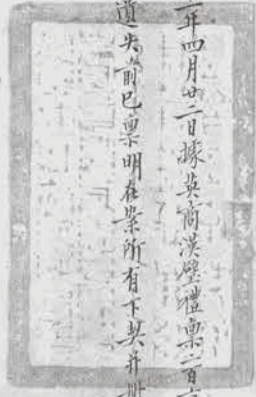 年四月廿二日據英商漢璧禮稟二百
遺失前已稟明在案所有下契并